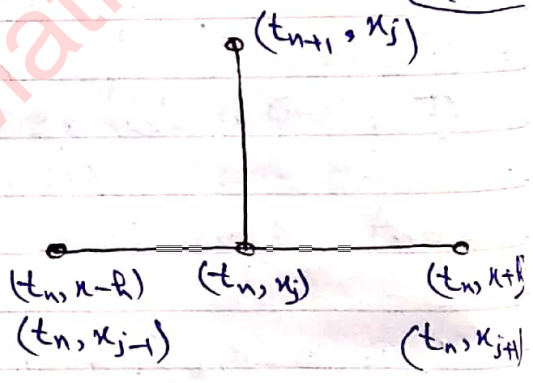 (tn+1, xj)
(tn, x-h) (tn, xj) (tn, x+h
(tn, xj-1) (tn, xj+1)